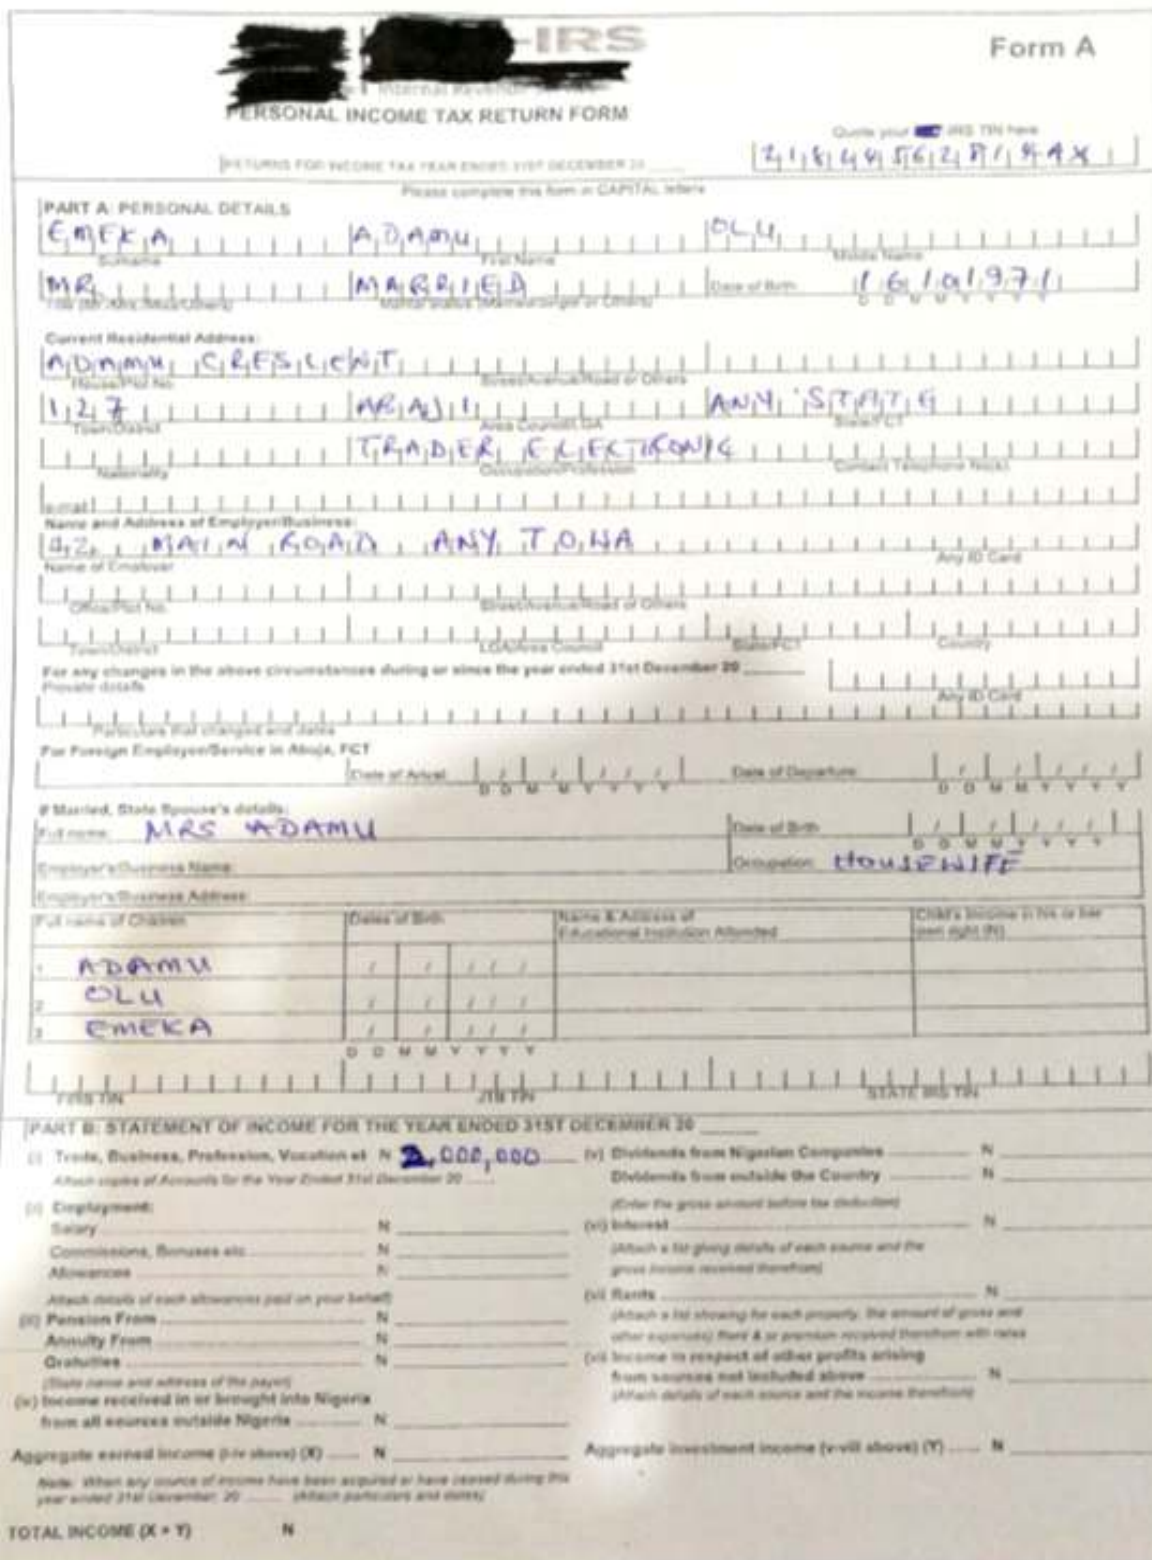 -IRS
Form A
Internal Revenue
PERSONAL INCOME TAX RETURN FORM
Quote your IRS TIN here
RETURNS FOR INCOME TAX YEAR ENDED 31ST DECEMBER 20 ____
Please complete this form in CAPITAL letters
PART A: PERSONAL DETAILS
EMEKA ADAMU OLU
Surname First Name Middle Name
MR MARRIED Date of Birth
Title (Mr./Mrs./Miss/Others) D D M M Y Y Y Y
Current Residential Address:
ADAMU CRESCENT
House/Plot No. Street/Avenue/Road or Others
127 ARAJI ANY STATE
Town/District Area Council/LGA State/FCT
TRADER ELECTRONIC
Nationality Occupation/Profession Contact Telephone No(s)
e-mail
Name and Address of Employer/Business:
42 MAIN ROAD ANY TOWN
Name of Employer Any ID Card
Office/Plot No. Street/Avenue/Road or Others
Town/District LGA/Area Council State/FCT Country
For any changes in the above circumstances during or since the year ended 31st December 20 ____
Provide details Any ID Card
Particulars that changed and dates
For Foreign Employee/Service in Abuja, FCT
Date of Arrival Date of Departure
D D M M Y Y Y Y D D M M Y Y Y Y
If Married, State Spouse's details:
Full name: MRS ADAMU Date of Birth
D D M M Y Y Y Y
Employer's/Business Name: Occupation: HOUSEWIFE
Employer's/Business Address:
Full name of Children Dates of Birth Name & Address of Educational Institution Attended Child's Income in his or her own right (N)
1 ADAMU
2 OLU
3 EMEKA
D D M M Y Y Y Y
FIRS TIN JTB TIN STATE IRS TIN
PART B: STATEMENT OF INCOME FOR THE YEAR ENDED 31ST DECEMBER 20 ____
(i) Trade, Business, Profession, Vocation et N 2,000,000
Attach copies of Accounts for the Year Ended 31st December 20
(ii) Employment:
Salary N
Commissions, Bonuses etc N
Allowances N
Attach details of each allowances paid on your behalf)
(iii) Pension From N
Annuity From N
Gratuities N
(State name and address of the payer)
(iv) Income received in or brought into Nigeria
from all sources outside Nigeria N
Aggregate earned income (i-iv above) (X) N
Note: When any source of income have been acquired or have ceased during this
year ended 31st December, 20 (Attach particulars and dates)
TOTAL INCOME (X + Y) N
(v) Dividends from Nigerian Companies N
Dividends from outside the Country N
(Enter the gross amount before tax deduction)
(vi) Interest N
(Attach a list giving details of each source and the
gross income received therefrom)
(vii) Rents N
(Attach a list showing for each property, the amount of gross and
other expenses) Rent & or premium received therefrom with rates
(vii) Income in respect of other profits arising
from sources not included above N
(Attach details of each source and the income therefrom)
Aggregate investment income (v-viii above) (Y) N